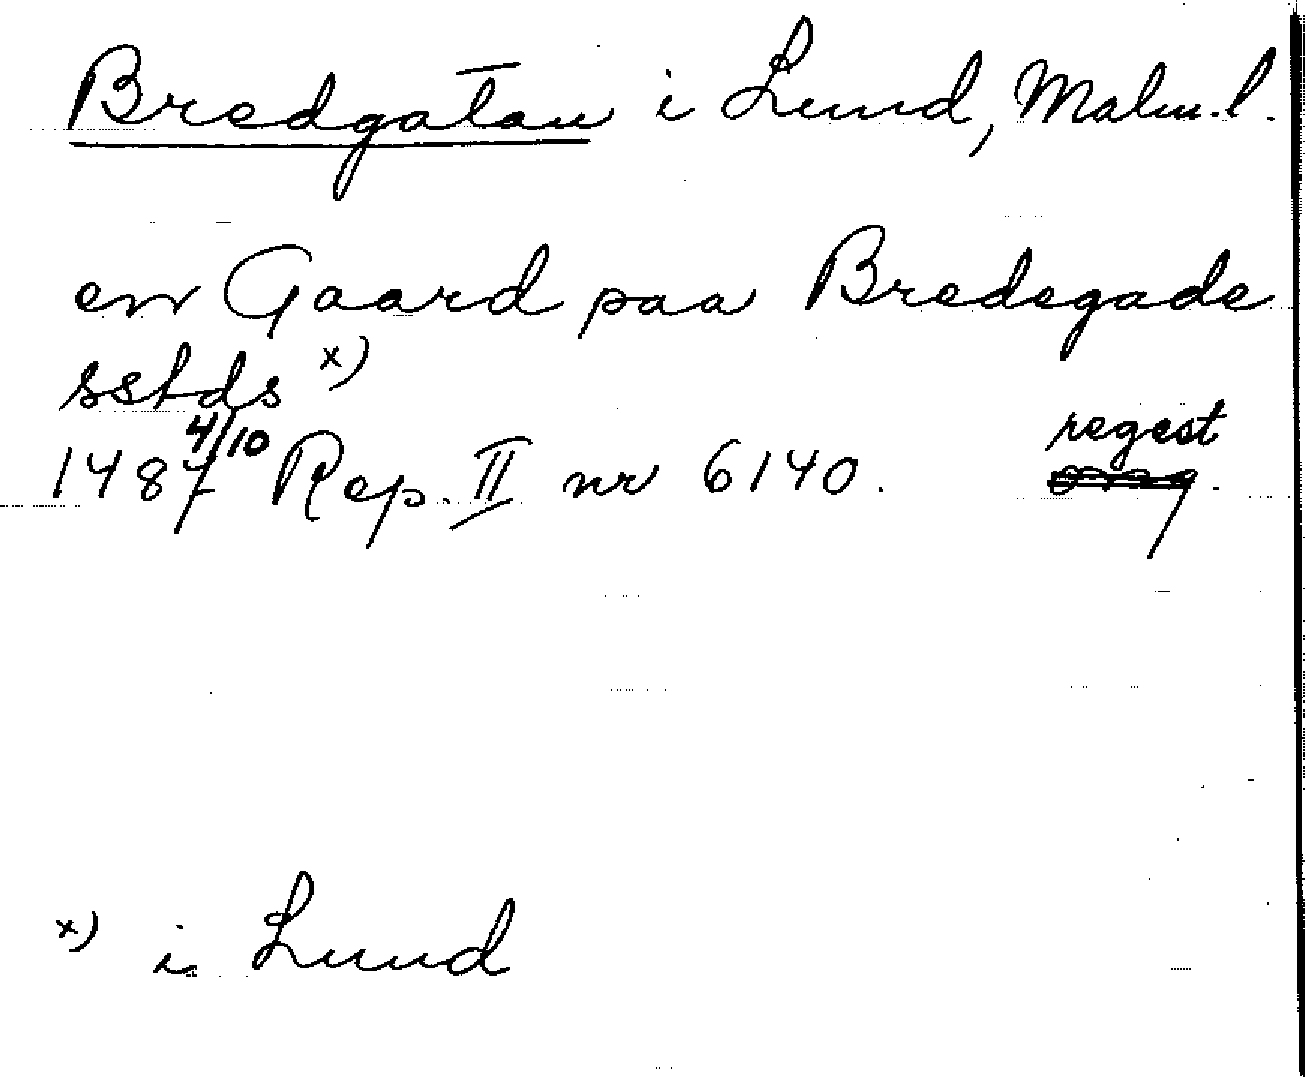 Bredgatan i Lund, Malm.l.
en Gaard paa Bredegade
sstds x)
1487 4/10 Rep. II nr 6140. regest
x) i Lund